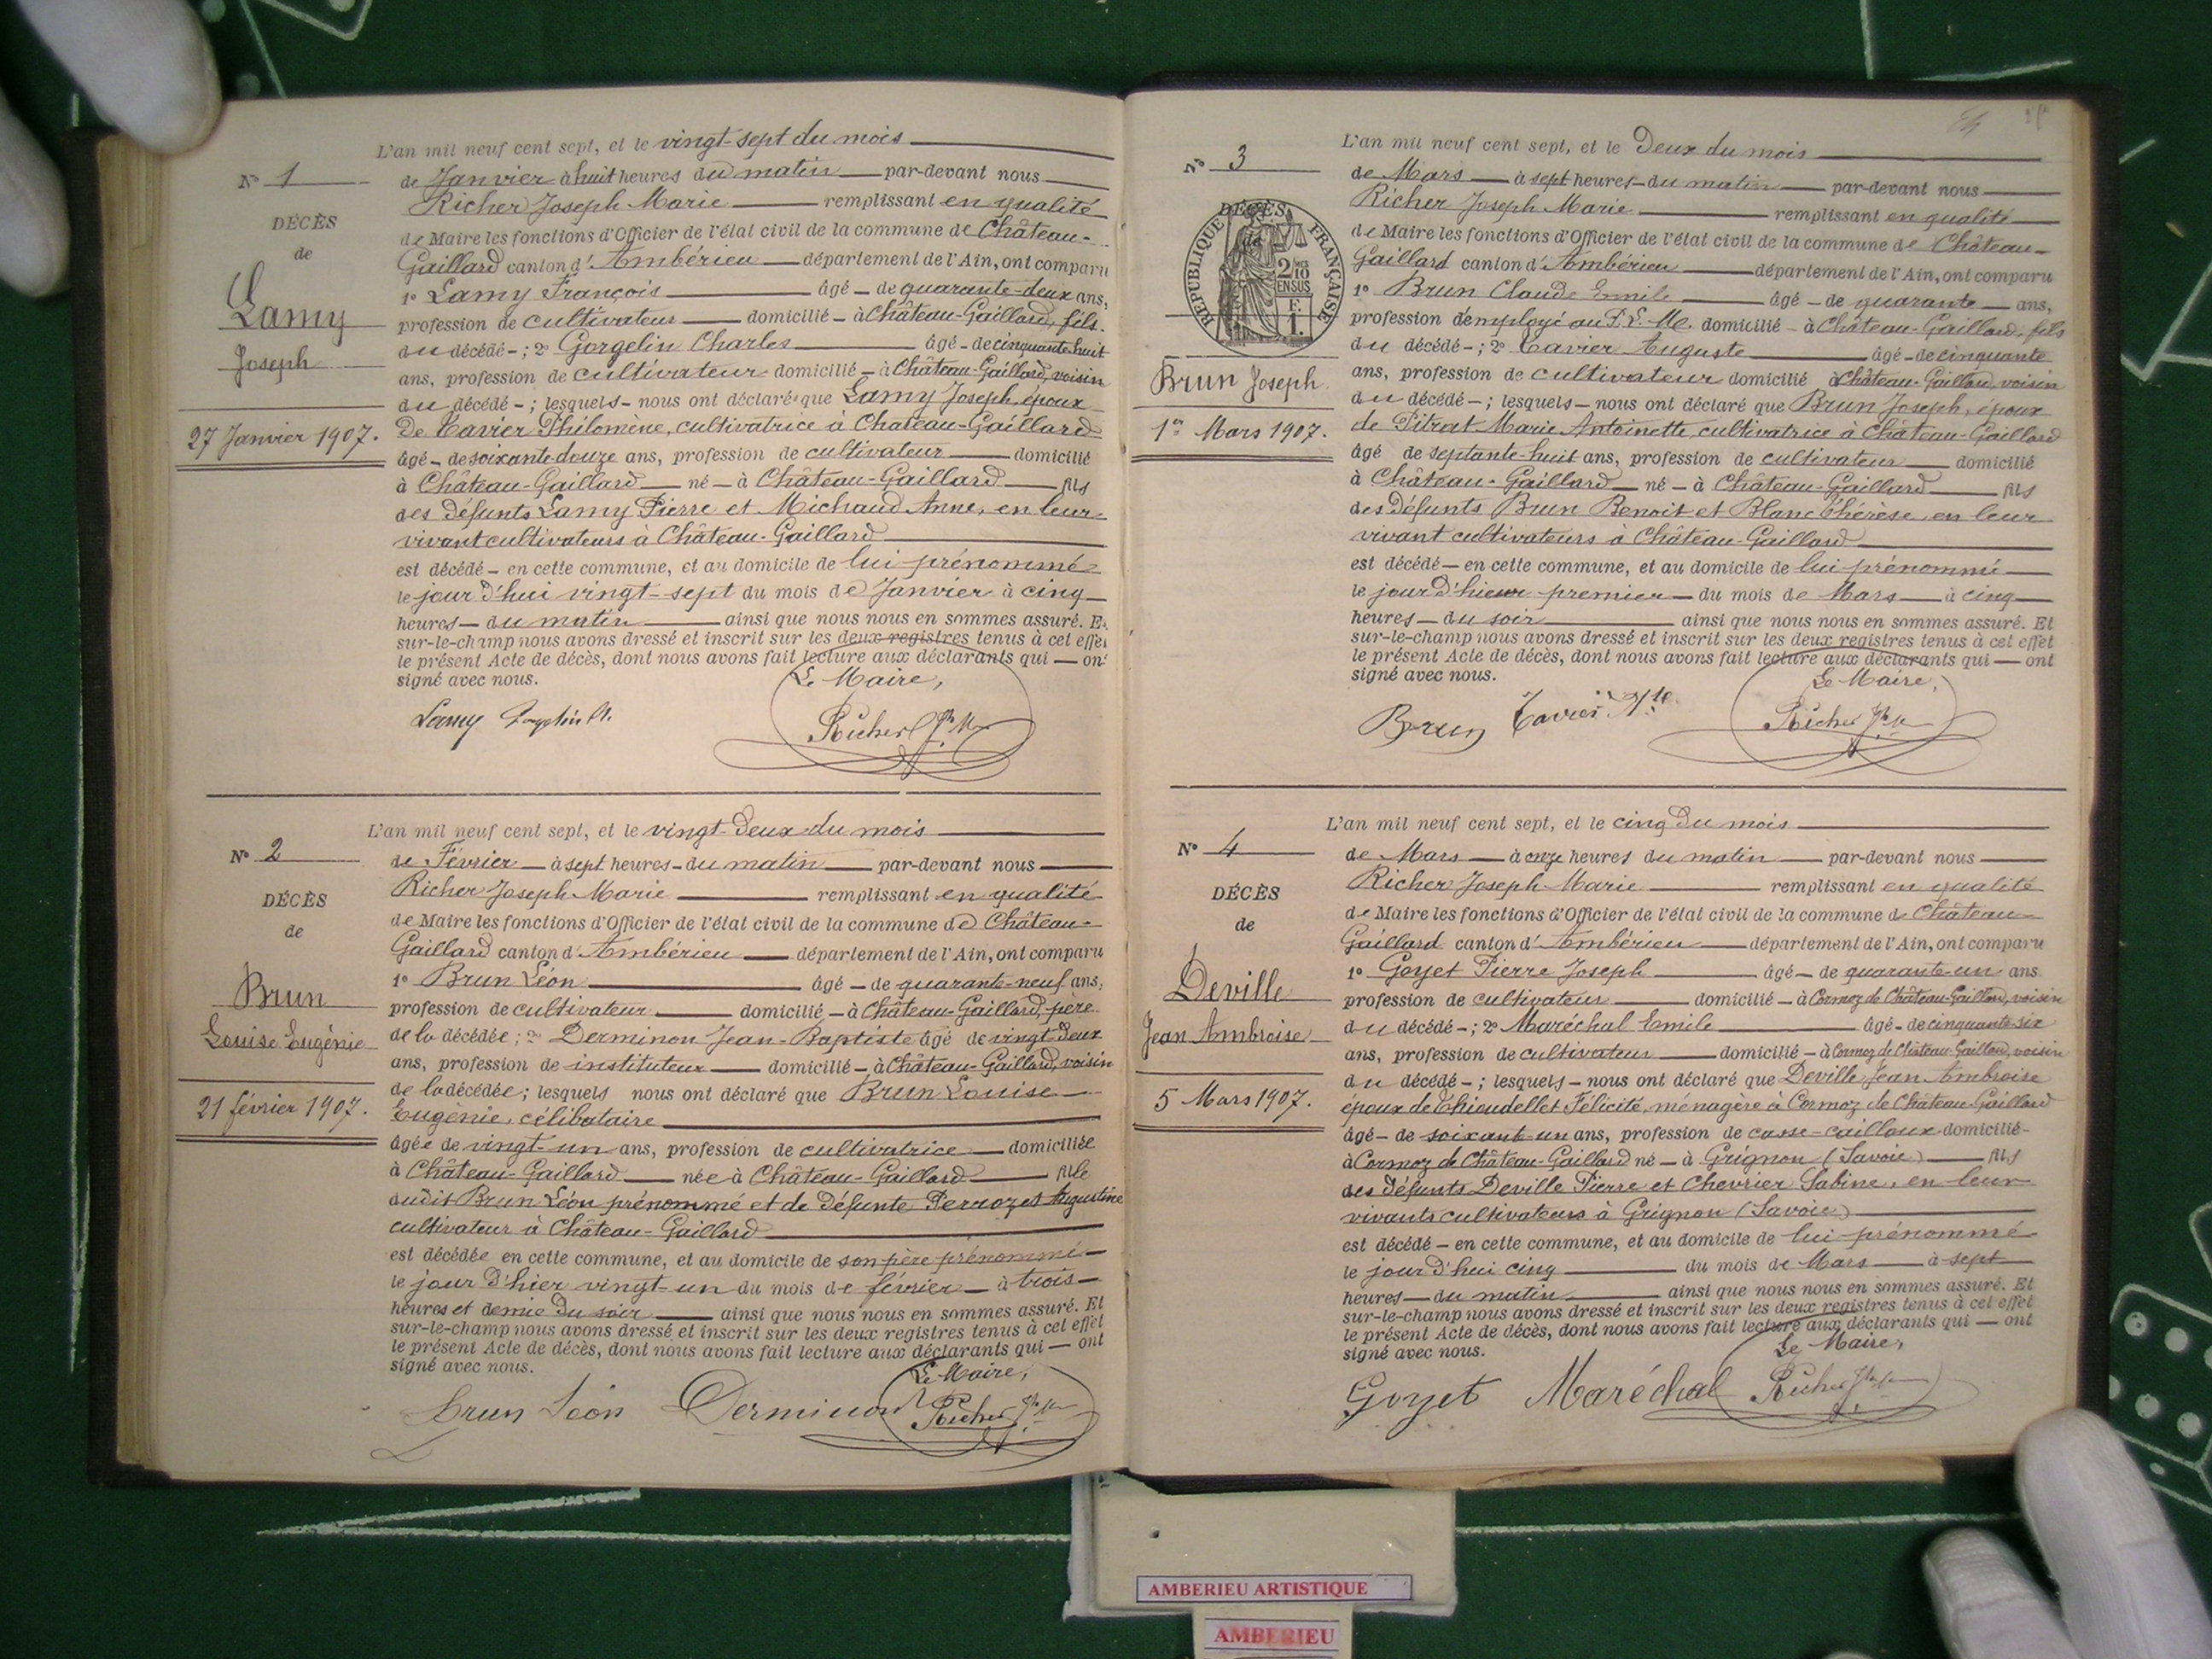 L'an mil neuf cent sept, et le vingt-sept du mois
N° 1
de Janvier à huit heures du matin par-devant nous
Richer Joseph Marie remplissant en qualité
DÉCÈS
de Maire les fonctions d'Officier de l'état civil de la commune de Château-
de
Gaillard canton d'Ambérieu département de l'Ain, ont comparu
1° Lamy François âgé de quarante-deux ans,
Lamy
profession de cultivateur domicilié à Château-Gaillard, fils
du décédé ; 2° Gorgelin Charles âgé de cinquante huit
Joseph
ans, profession de cultivateur domicilié à Château-Gaillard, voisin
du décédé ; lesquels nous ont déclaré que Lamy Joseph, époux
27 Janvier 1907.
de Tavier Philomène, cultivatrice à Château-Gaillard
âgé de soixante douze ans, profession de cultivateur domicilié
à Château-Gaillard né à Château-Gaillard fils
des défunts Lamy Pierre et Michaud Anne, en leur
vivant cultivateurs à Château-Gaillard
est décédé en cette commune, et au domicile de lui prénommé
le jour d'hui vingt-sept du mois de Janvier à cinq
heures du matin ainsi que nous nous en sommes assuré. Et
sur-le-champ nous avons dressé et inscrit sur les deux registres tenus à cet effet
le présent Acte de décès, dont nous avons fait lecture aux déclarants qui ont
signé avec nous.
Le Maire,
Lamy
Richer Jh M
L'an mil neuf cent sept, et le vingt-deux du mois
N° 2
de Février à sept heures du matin par-devant nous
Richer Joseph Marie remplissant en qualité
DÉCÈS
de Maire les fonctions d'Officier de l'état civil de la commune de Château-
de
Gaillard canton d'Ambérieu département de l'Ain, ont comparu
1° Brun Léon âgé de quarante-neuf ans,
Brun
profession de cultivateur domicilié à Château-Gaillard, père
Louise Eugénie
de la décédée ; 2° Derminon Jean-Baptiste âgé de vingt-deux
ans, profession de instituteur domicilié à Château-Gaillard, voisin
de la décédée ; lesquels nous ont déclaré que Brun Louise
21 février 1907.
Eugénie, célibataire
âgée de vingt-un ans, profession de cultivatrice domiciliée
à Château-Gaillard née à Château-Gaillard fille
dudit Brun Léon prénommé et de défunte Perrozet Augustine
cultivateur à Château-Gaillard
est décédée en cette commune, et au domicile de son père prénommé
le jour d'hier vingt-un du mois de février à trois
heures et demie du soir ainsi que nous nous en sommes assuré. Et
sur-le-champ nous avons dressé et inscrit sur les deux registres tenus à cet effet
le présent Acte de décès, dont nous avons fait lecture aux déclarants qui ont
signé avec nous.
Le Maire,
Brun Léon Derminon Richer Jh M
L'an mil neuf cent sept, et le Deux du mois
N° 3
de Mars à sept heures du matin par-devant nous
Richer Joseph Marie remplissant en qualité
DÉCÈS
de
RÉPUBLIQUE FRANÇAISE
2/10 EN SUS
F. 1.
de Maire les fonctions d'Officier de l'état civil de la commune de Château-
Gaillard canton d'Ambérieu département de l'Ain, ont comparu
1° Brun Claude Emile âgé de quarante ans,
profession d'employé au P. L. M. domicilié à Château-Gaillard, fils
du décédé ; 2° Tavier Auguste âgé de cinquante
Brun Joseph
ans, profession de cultivateur domicilié à Château-Gaillard, voisin
du décédé ; lesquels nous ont déclaré que Brun Joseph, époux
1er Mars 1907.
de Pitrat Marie Antoinette, cultivatrice à Château-Gaillard
âgé de septante-huit ans, profession de cultivateur domicilié
à Château-Gaillard né à Château-Gaillard fils
des défunts Brun Benoit et Blanc Thérèse, en leur
vivant cultivateurs à Château-Gaillard
est décédé en cette commune, et au domicile de lui prénommé
le jour d'hier premier du mois de Mars à cinq
heures du soir ainsi que nous nous en sommes assuré. Et
sur-le-champ nous avons dressé et inscrit sur les deux registres tenus à cet effet
le présent Acte de décès, dont nous avons fait lecture aux déclarants qui ont
signé avec nous.
Le Maire,
Brun Tavier Richer Jh M
L'an mil neuf cent sept, et le cinq du mois
N° 4
de Mars à onze heures du matin par-devant nous
Richer Joseph Marie remplissant en qualité
DÉCÈS
de Maire les fonctions d'Officier de l'état civil de la commune de Château-
de
Gaillard canton d'Ambérieu département de l'Ain, ont comparu
1° Goyet Pierre Joseph âgé de quarante-un ans
Deville
profession de cultivateur domicilié à Cormoz de Château-Gaillard, voisin
Jean Ambroise
du décédé ; 2° Maréchal Emile âgé de cinquante-six
ans, profession de cultivateur domicilié à Cormoz de Château-Gaillard, voisin
du décédé ; lesquels nous ont déclaré que Deville Jean Ambroise
5 Mars 1907.
époux de Thioudellet Félicité, ménagère à Cormoz de Château-Gaillard
âgé de soixante-un ans, profession de casse-cailloux domicilié
à Cormoz de Château-Gaillard né à Grignon (Savoie) fils
des défunts Deville Pierre et Chevrier Sabine, en leur
vivants cultivateurs à Grignon (Savoie)
est décédé en cette commune, et au domicile de lui prénommé
le jour d'hui cinq du mois de Mars à sept
heures du matin ainsi que nous nous en sommes assuré. Et
sur-le-champ nous avons dressé et inscrit sur les deux registres tenus à cet effet
le présent Acte de décès, dont nous avons fait lecture aux déclarants qui ont
signé avec nous.
Le Maire,
Goyet Maréchal Richer Jh M
AMBERIEU ARTISTIQUE
AMBERIEU